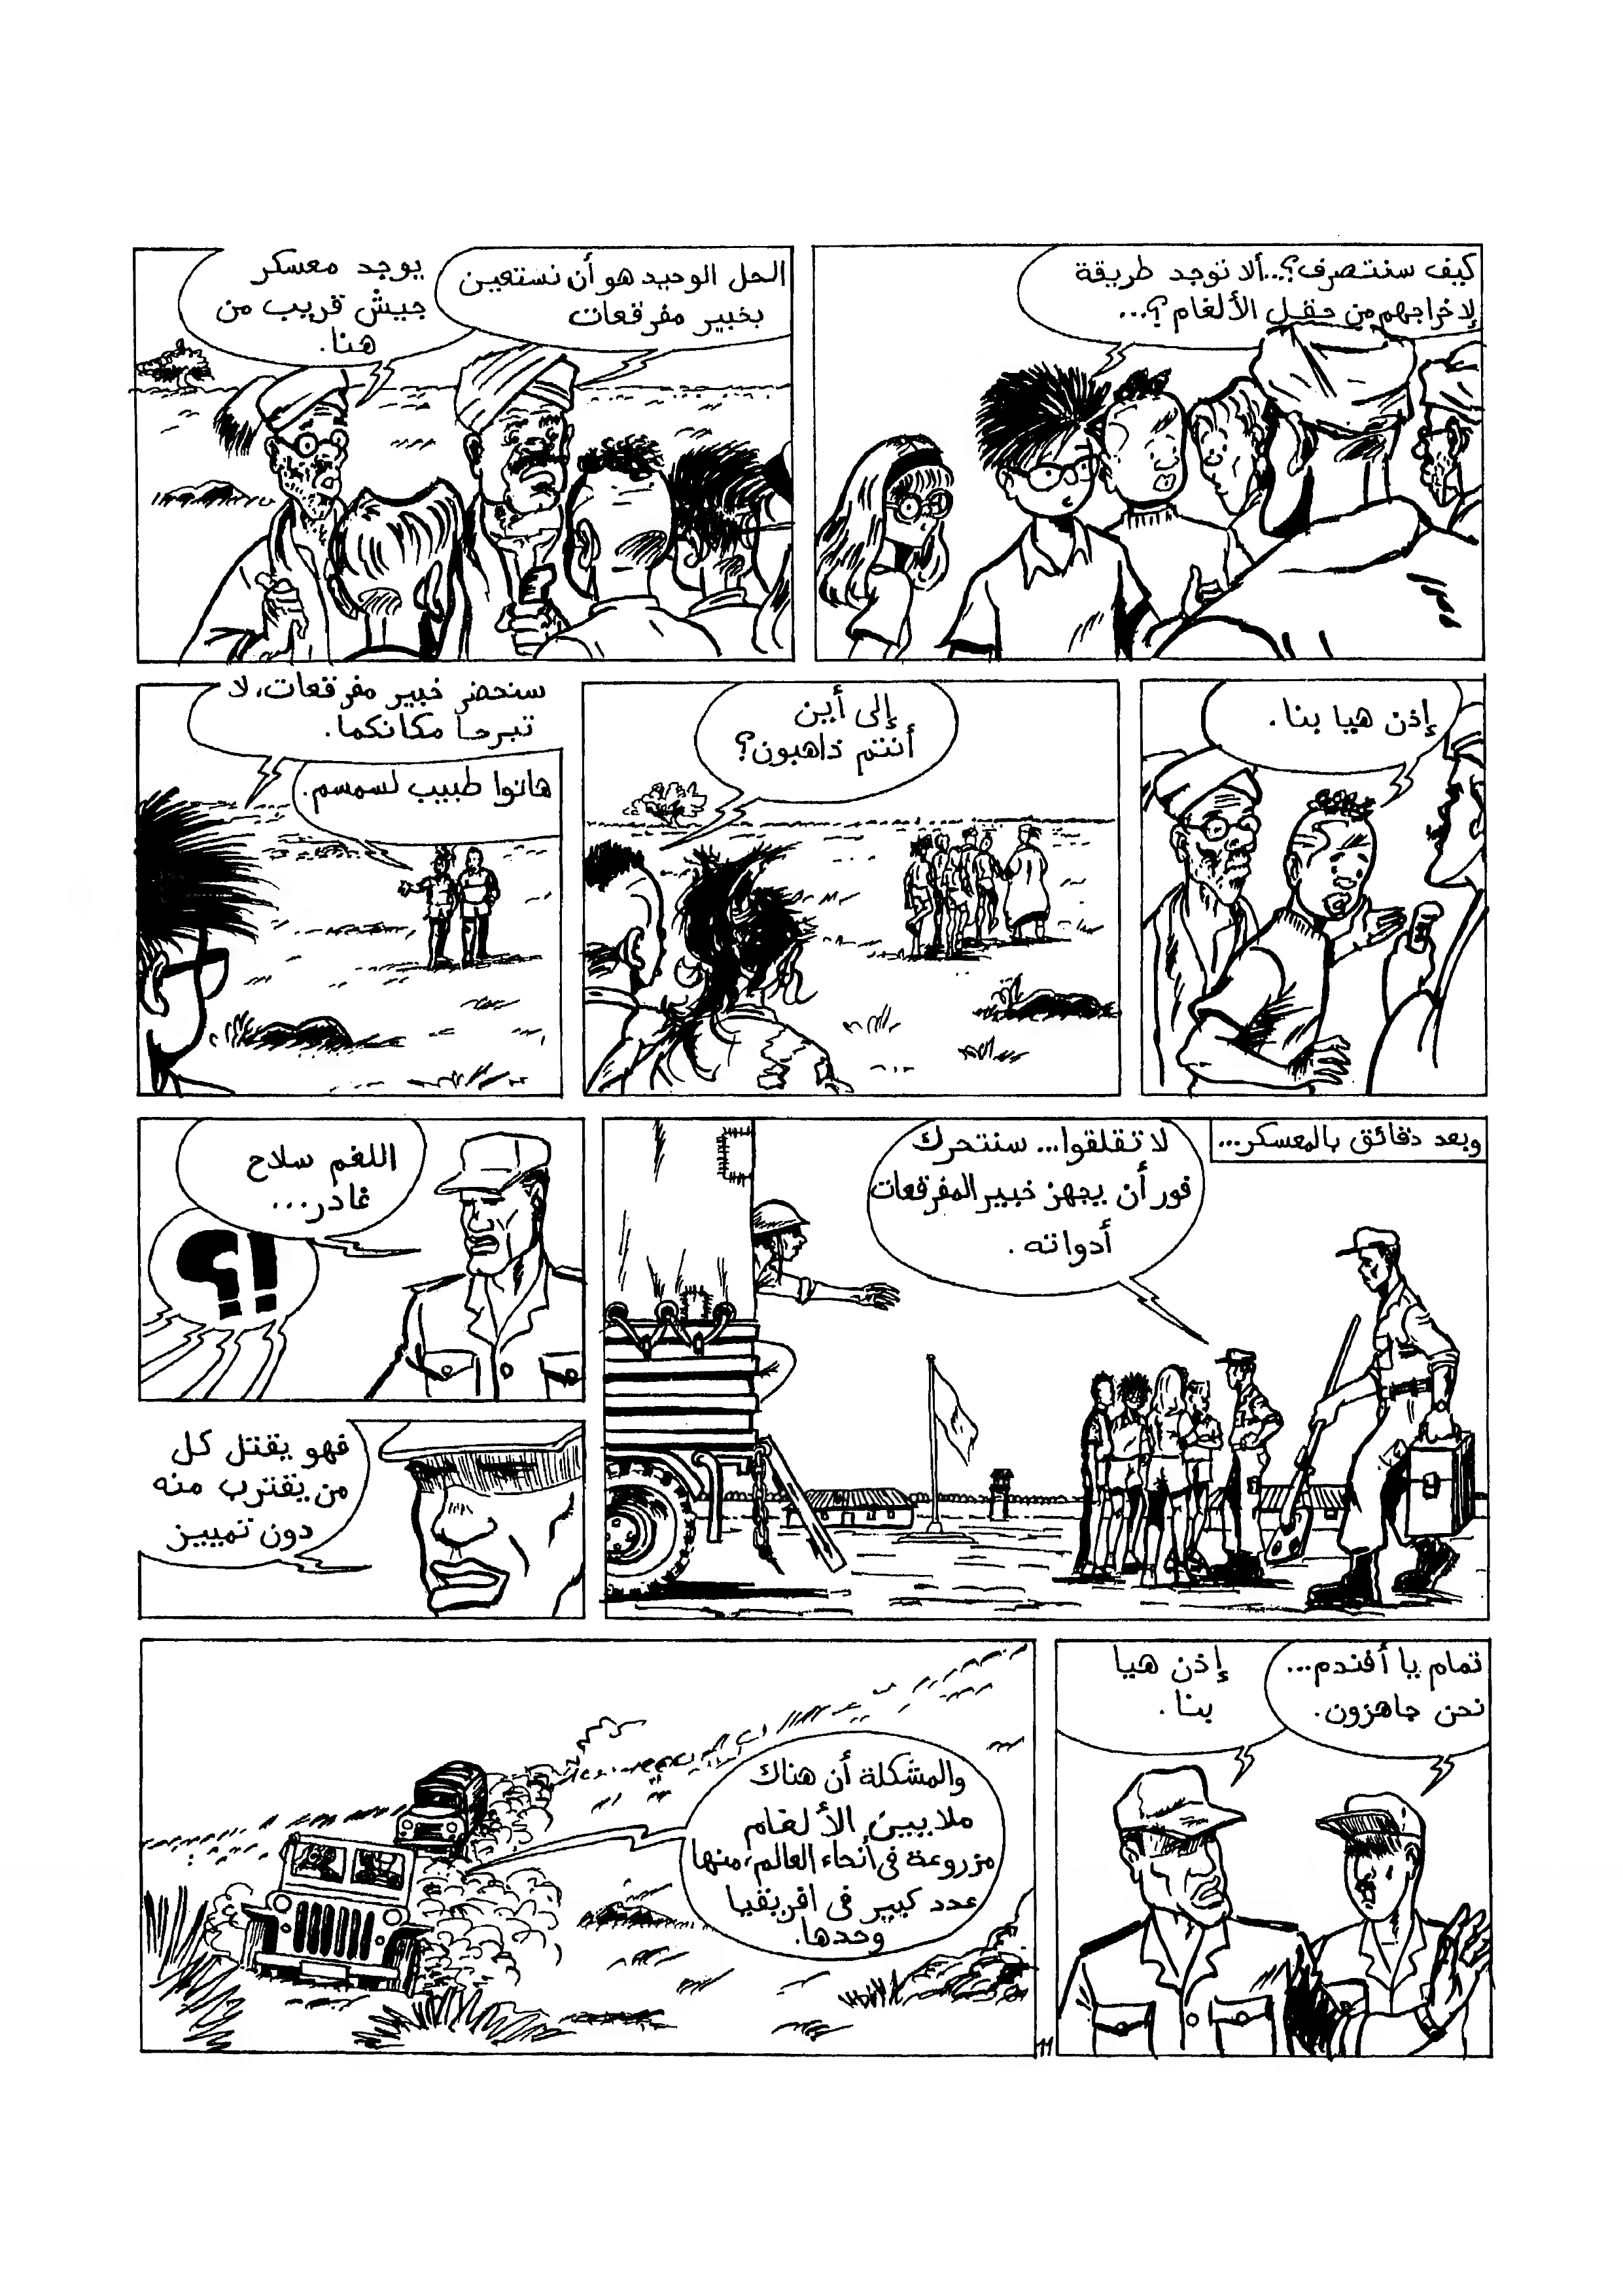 كيف سنتصرف؟...ألا توجد طريقة
لإخراجهم من حقل الألغام؟...
الحل الوحيد هو أن نستعين
بخبير مفرقعات
يوجد معسكر
جيش قريب من
هنا.
إذن هيا بنا.
إلى أين
أنتم ذاهبون؟
سنحضر خبير مفرقعات، لا
تبرحا مكانكما.
هاتوا طبيب لسمسم.
وبعد دقائق بالمعسكر...
لا تقلقوا... سنتحرك
فور أن يجهز خبير المفرقعات
أدواته.
اللغم سلاح
غادر...
!؟
فهو يقتل كل
من يقترب منه
دون تمييز
تمام يا أفندم...
نحن جاهزون.
إذن هيا
بنا.
والمشكلة أن هناك
ملايين الألغام
مزروعة فى أنحاء العالم، منها
عدد كبير فى افريقيا
وحدها.
11